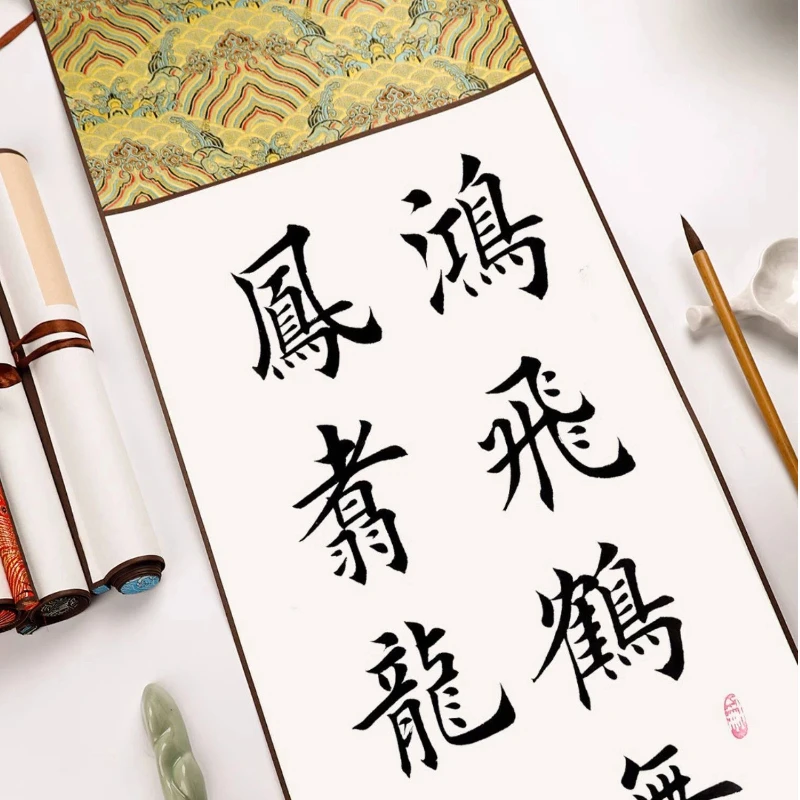 鴻飛鶴舞
鳳翥龍